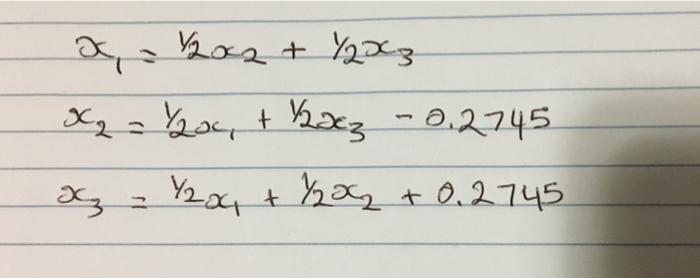 x₁ = ½x₂ + ½x₃
x₂ = ½x₁ + ½x₃ - 0.2745
x₃ = ½x₁ + ½x₂ + 0.2745